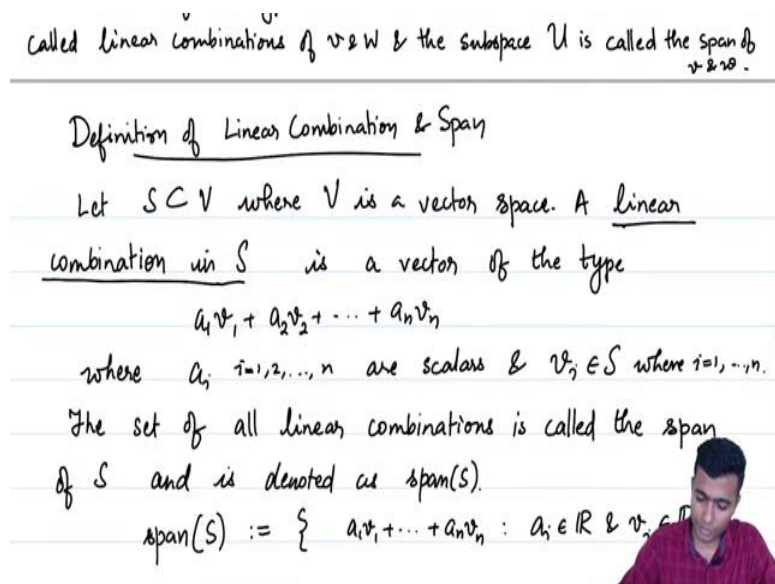 called linear combinations of v & W & the subspace U is called the span of
v & w.
Definition of Linear Combination & Span
Let S ⊂ V where V is a vector space. A linear
combination in S is a vector of the type
a₁v₁ + a₂v₂ + ... + aₙvₙ
where aᵢ i=1,2,...,n are scalars & vᵢ ∈ S where i=1,...,n.
The set of all linear combinations is called the span
of S and is denoted as span(S).
span(S) := { a₁v₁ + ... + aₙvₙ : aᵢ ∈ ℝ & vᵢ ∈